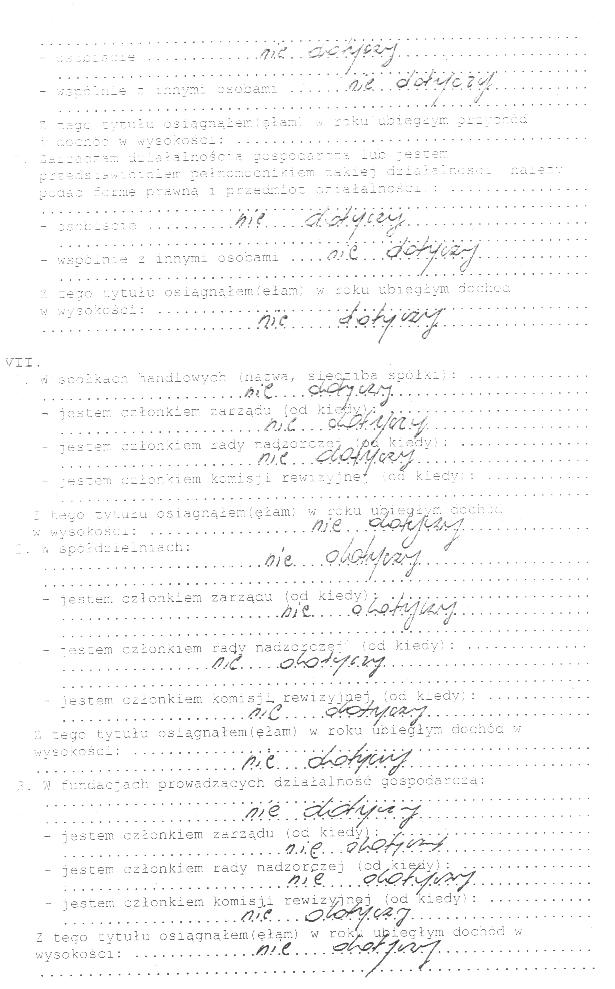 - osobiście ..... nie dotyczy
- wspólnie z innymi osobami ..... nie dotyczy
Z tego tytułu osiągnąłem(ęłam) w roku ubiegłym przychód
i dochód w wysokości: .....
Zarządzam działalnością gospodarczą lub jestem
przedstawicielem pełnomocnikiem takiej działalności należy
podać formę prawną i przedmiot działalności : .....
- osobiście ..... nie dotyczy
- wspólnie z innymi osobami ..... nie dotyczy
Z tego tytułu osiągnąłem(ęłam) w roku ubiegłym dochód
w wysokości: .....
nie dotyczy
VII.
W spółkach handlowych (nazwa, siedziba spółki): .....
nie dotyczy
- jestem członkiem zarządu (od kiedy): .....
nie dotyczy
- jestem członkiem rady nadzorczej (od kiedy): .....
nie dotyczy
- jestem członkiem komisji rewizyjnej (od kiedy): .....
Z tego tytułu osiągnąłem(ęłam) w roku ubiegłym dochód
w wysokości: ..... nie dotyczy
2. W spółdzielniach:
nie dotyczy
- jestem członkiem zarządu (od kiedy): .....
nie dotyczy
- jestem członkiem rady nadzorczej (od kiedy): .....
nie dotyczy
- jestem członkiem komisji rewizyjnej (od kiedy): .....
nie dotyczy
Z tego tytułu osiągnąłem(ęłam) w roku ubiegłym dochód w
wysokości: .....
nie dotyczy
3. W fundacjach prowadzących działalność gospodarczą:
nie dotyczy
- jestem członkiem zarządu (od kiedy): .....
nie dotyczy
- jestem członkiem rady nadzorczej (od kiedy): .....
nie dotyczy
- jestem członkiem komisji rewizyjnej (od kiedy): .....
nie dotyczy
Z tego tytułu osiągnąłem(ęłam) w roku ubiegłym dochód w
wysokości: ..... nie dotyczy